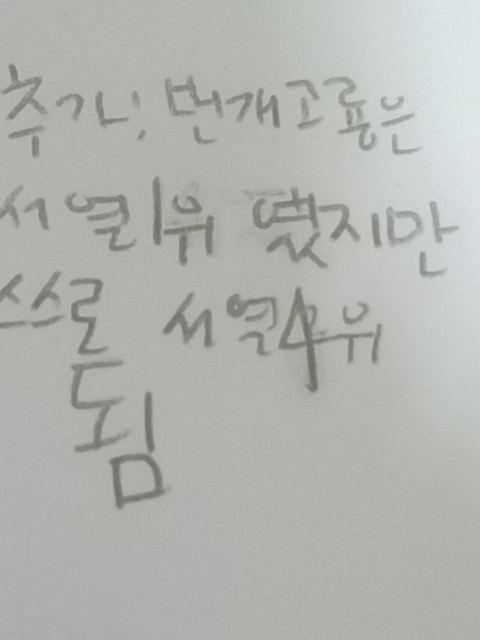 추가! 번개고룡은
서열1위 였지만
스스로 서열4위
됨